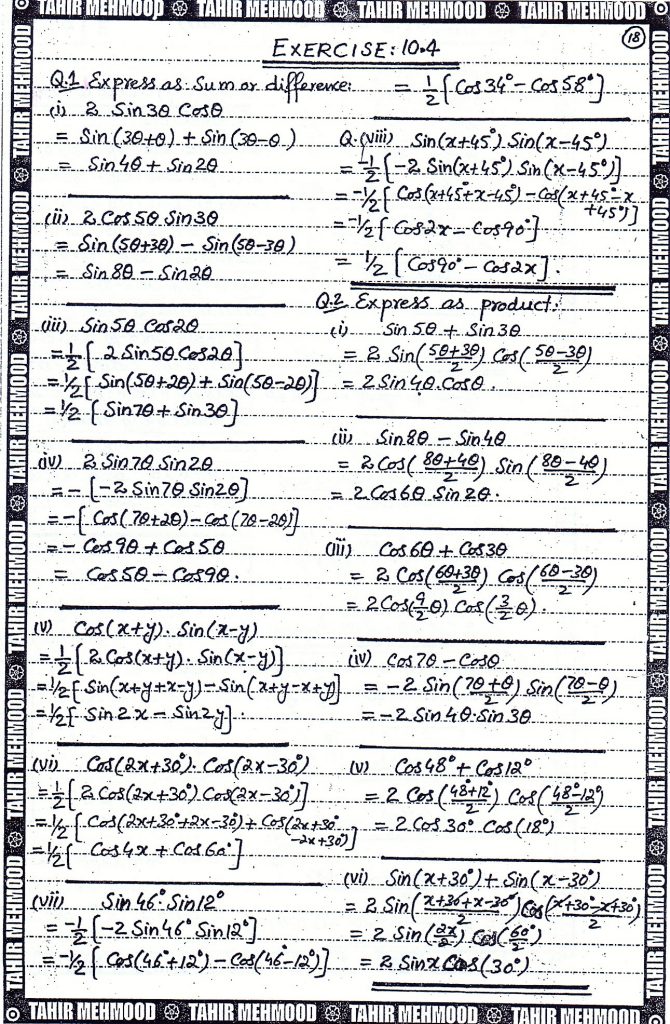 TAHIR MEHMOOD TAHIR MEHMOOD TAHIR MEHMOOD TAHIR MEHMOOD
18
EXERCISE: 10.4
Q.1 Express as Sum or difference:
(i) 2 Sin3θ Cosθ
= Sin (3θ+θ) + Sin (3θ-θ)
= Sin4θ + Sin2θ
(ii) 2 Cos5θ Sin3θ
= Sin (5θ+3θ) - Sin(5θ-3θ)
= Sin8θ - Sin2θ
(iii) Sin5θ Cos2θ
= 1/2 [2 Sin5θ Cos2θ]
= 1/2 [Sin(5θ+2θ) + Sin(5θ-2θ)]
= 1/2 [Sin7θ + Sin3θ]
(iv) 2 Sin7θ Sin2θ
= - [-2 Sin7θ Sin2θ]
= - [Cos(7θ+2θ) - Cos(7θ-2θ)]
= - Cos9θ + Cos5θ
= Cos5θ - Cos9θ.
(v) Cos(x+y). Sin(x-y)
= 1/2 [2 Cos(x+y). Sin(x-y)]
= 1/2 [Sin(x+y+x-y) - Sin(x+y-x+y)]
= 1/2 [Sin2x - Sin2y].
(vi) Cos(2x+30°). Cos(2x-30°)
= 1/2 [2 Cos(2x+30°) Cos(2x-30°)]
= 1/2 [Cos(2x+30°+2x-30°) + Cos(2x+30°
-2x+30°)]
= 1/2 [Cos4x + Cos60°]
(vii) Sin46° Sin12°
= -1/2 [-2 Sin46° Sin12°]
= -1/2 [Cos(46°+12°) - Cos(46°-12°)]
= 1/2 [Cos34° - Cos58°]
Q.(viii) Sin(x+45°) Sin(x-45°)
= -1/2 [-2 Sin(x+45°) Sin(x-45°)]
= -1/2 [Cos(x+45°+x-45°) - Cos(x+45°-x
+45°)]
= -1/2 [Cos2x - Cos90°]
= 1/2 [Cos90° - Cos2x].
Q.2 Express as product:
(i) Sin5θ + Sin3θ
= 2 Sin((5θ+3θ)/2) Cos((5θ-3θ)/2)
= 2 Sin4θ.Cosθ.
(ii) Sin8θ - Sin4θ
= 2 Cos((8θ+4θ)/2) Sin((8θ-4θ)/2)
= 2 Cos6θ Sin2θ.
(iii) Cos6θ + Cos3θ
= 2 Cos((6θ+3θ)/2) Cos((6θ-3θ)/2)
= 2 Cos(9/2 θ) Cos(3/2 θ).
(iv) Cos7θ - Cosθ
= -2 Sin((7θ+θ)/2) Sin((7θ-θ)/2)
= -2 Sin4θ.Sin3θ
(v) Cos48° + Cos12°
= 2 Cos((48°+12°)/2) Cos((48°-12°)/2)
= 2 Cos30° Cos(18°)
(vi) Sin(x+30°) + Sin(x-30°)
= 2 Sin((x+30°+x-30°)/2) Cos((x+30°-x+30°)/2)
= 2 Sin(2x/2) Cos(60°/2)
= 2 Sinx Cos(30°)
TAHIR MEHMOOD TAHIR MEHMOOD TAHIR MEHMOOD TAHIR MEHMOOD
TAHIR MEHMOOD TAHIR MEHMOOD TAHIR MEHMOOD TAHIR MEHMOOD TAHIR MEHMOOD TAHIR MEHMOOD
TAHIR MEHMOOD TAHIR MEHMOOD TAHIR MEHMOOD TAHIR MEHMOOD TAHIR MEHMOOD TAHIR MEHMOOD